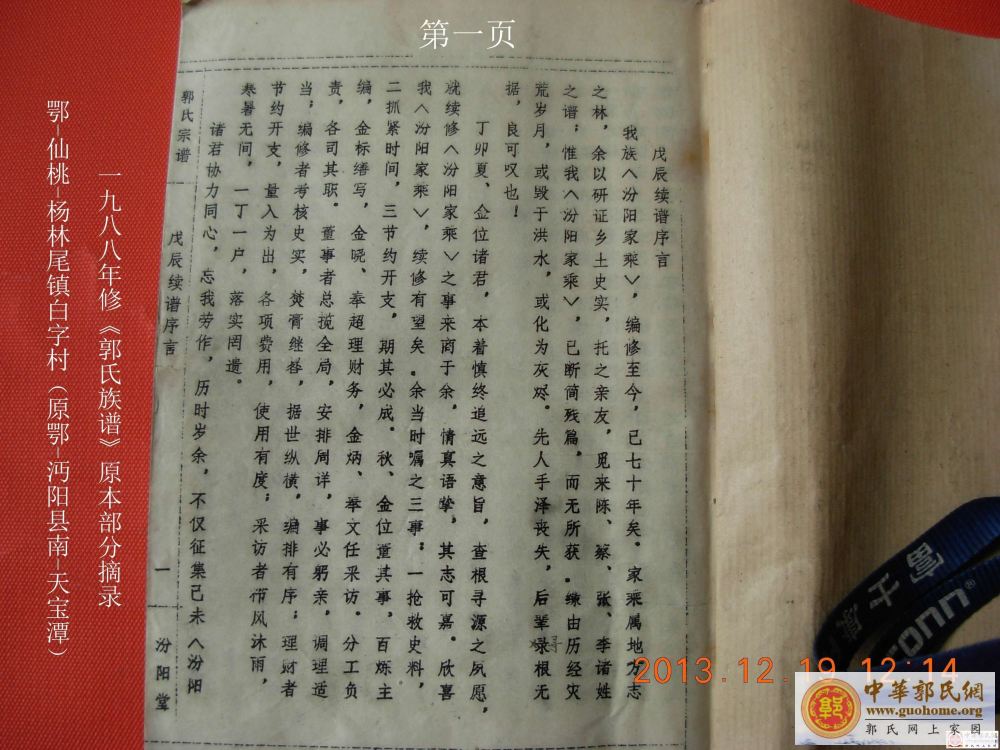 第一页
戊辰续谱序言
我族〈汾阳家乘〉，编修至今，已七十年矣。家乘属地方志
之林，余以研证乡土史实，托之亲友，见来陈、蔡、张、李诸姓
之谱；惟我〈汾阳家乘〉，已断简残篇，而无所获．缘由历经灾
荒岁月，或毁于洪水，或化为灰烬。先人手泽丧失，后辈录根无
据，良可叹也！
丁卯夏、金位诸君，本着慎终追远之意旨，查根寻源之夙愿，
就续修〈汾阳家乘〉之事来商于余，情真语挚，其志可嘉。欣喜
我〈汾阳家乘〉，续修有望矣．余当时嘱之三事：一抢救史料，
二抓紧时间，三节约开支，期其必成。秋、金位董其事，百炼主
编，金标缮写，金晓、奉超理财务，金炳、奉文任采访。分工负
责，各司其职。董事者总揽全局，安排周详，事必躬亲，调理适
当；编修者考核史实，焚膏继晷，据世纵横，编排有序；理财者
节约开支，量入为出，各项费用，使用有度；采访者栉风沐雨，
寒暑无间，一丁一户，落实罔遗。
诸君协力同心，忘我劳作，历时岁余，不仅征集己未〈汾阳
郭氏宗谱
戊辰续谱序言
一
汾阳堂
一九八八年修《郭氏族谱》原本部分摘录
鄂-仙桃-杨林尾镇白字村（原鄂-沔阳县南-天宝潭）
2013.12.19 12:14
中華郭氏網
www.guohome.org
郭氏网上家园